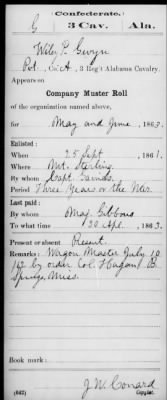 Confederate.
G 3 Cav. Ala.
Wiley P. Gwyn
Pvt., Co. A, 3 Reg't Alabama Cavalry.
Appears on
Company Muster Roll
of the organization named above,
for May and June, 1862.
Enlisted:
When 25 Sept, 1861.
Where Mt. Sterling
By whom Capt.
Period Three Years or the War
Last paid:
By whom Maj. Gibbons
To what time 30 Apl., 1863.
Present or absent Present
Remarks: Wagon Master July 10
/62 by order Col. Hagan
Springs, Miss.
Book mark:
(642) J. W. Conard
Copyist.